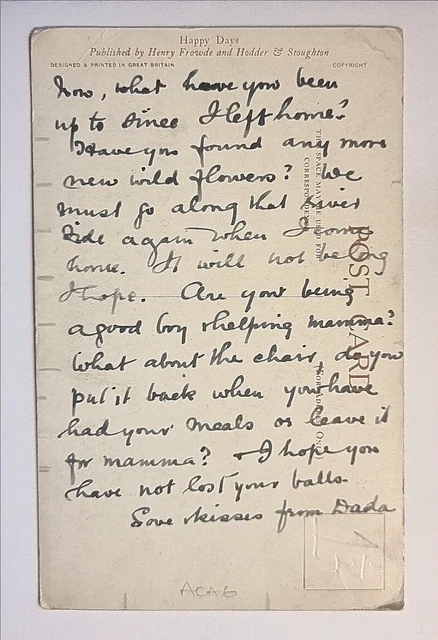 Happy Days
Published by Henry Frowde and Hodder & Stoughton
DESIGNED & PRINTED IN GREAT BRITAIN COPYRIGHT
Now, what have you been
up to since I left home?
Have you found any more
new wild flowers? We
must go along that river
side again when I come
home. It will not be long
I hope. Are you being
a good boy & helping mamma?
What about the chair, do you
put it back when you have
had your meals or leave it
for mamma? I hope you
have not lost your balls.
Love & kisses from Dada
POST CARD
THIS SPACE MAY BE USED FOR
CORRESPONDENCE
FOR ADDRESS ONLY
ACA6